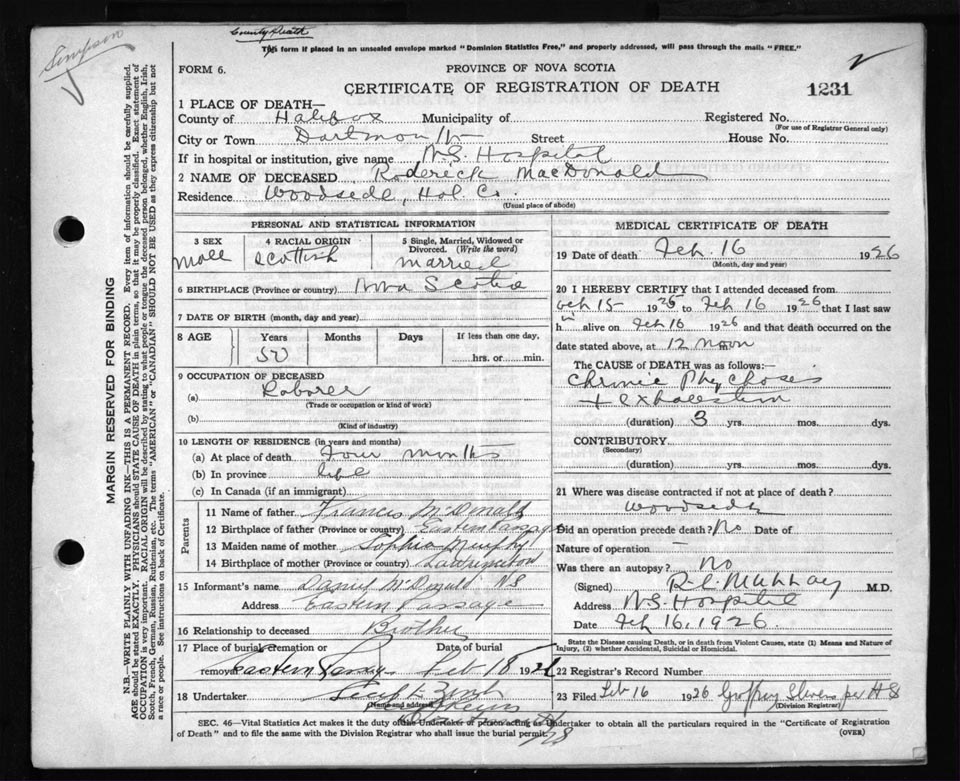 Simpson
County Death
This form if placed in an unsealed envelope marked "Dominion Statistics Free," and properly addressed, will pass through the mails "FREE."
FORM 6.
PROVINCE OF NOVA SCOTIA
CERTIFICATE OF REGISTRATION OF DEATH
1231
MARGIN RESERVED FOR BINDING
N.B.—WRITE PLAINLY WITH UNFADING INK—THIS IS A PERMANENT RECORD. Every item of information should be carefully supplied.
AGE should be stated EXACTLY. PHYSICIANS should STATE CAUSE OF DEATH in plain terms, so that it may be properly classified. Exact statement of
OCCUPATION is very important. RACIAL ORIGIN will be described by stating to what people or tongue the deceased person belonged, whether English, Irish,
Scotch, French, German, Russian, Ruthenian, etc. The terms "AMERICAN" or "CANADIAN" SHOULD NOT BE USED as they express citizenship but not
a race or people. See instructions on back of Certificate.
1 PLACE OF DEATH—
County of Halifax Municipality of Registered No.
(For use of Registrar General only)
City or Town Dartmouth Street House No.
If in hospital or institution, give name N.S. Hospital
2 NAME OF DECEASED Rodereck MacDonald
Residence Woodside, Hal Co.
(Usual place of abode)
PERSONAL AND STATISTICAL INFORMATION
3 SEX male
4 RACIAL ORIGIN Scottish
5 Single, Married, Widowed or Divorced. (Write the word) married
6 BIRTHPLACE (Province or country) Nova Scotia
7 DATE OF BIRTH (month, day and year)
8 AGE Years Months Days If less than one day,
50 hrs. or min.
9 OCCUPATION OF DECEASED
(a) Laborer
(Trade or occupation or kind of work)
(b)
(Kind of industry)
10 LENGTH OF RESIDENCE (in years and months)
(a) At place of death Four months
(b) In province life
(c) In Canada (if an immigrant)
Parents
11 Name of father Francis McDonald
12 Birthplace of father (Province or country) Eastern Passage
13 Maiden name of mother Sophia Murphy
14 Birthplace of mother (Province or country) Lawrencetown
15 Informant's name Daniel McDonald NS
Address Eastern Passage
16 Relationship to deceased Brother
17 Place of burial, cremation or removal Date of burial
Eastern Passage Feb 18 1926
18 Undertaker
(Name and address)
MEDICAL CERTIFICATE OF DEATH
19 Date of death Feb. 16 1926
(Month, day and year)
20 I HEREBY CERTIFY that I attended deceased from
Oct 15 1925 to Feb 16 1926 that I last saw
h alive on Feb 16 1926 and that death occurred on the
date stated above, at 12 noon
The CAUSE OF DEATH was as follows:—
Chronic Phychosis
+ exhaustion
(duration) 3 yrs. mos. dys.
CONTRIBUTORY
(Secondary)
(duration) yrs. mos. dys.
21 Where was disease contracted if not at place of death?
Woodside
Did an operation precede death? No Date of
Nature of operation —
Was there an autopsy? No
(Signed) M.D.
Address N.S. Hospital
Date Feb 16, 1926.
State the Disease causing Death, or in death from Violent Causes, state (1) Means and Nature of
Injury, (2) whether Accidental, Suicidal or Homicidal.
22 Registrar's Record Number
23 Filed Feb 16 1926 Stevens per HS
(Division Registrar)
SEC. 46—Vital Statistics Act makes it the duty of the Undertaker or person acting as Undertaker to obtain all the particulars required in the "Certificate of Registration
of Death" and to file the same with the Division Registrar who shall issue the burial permit.
(OVER)